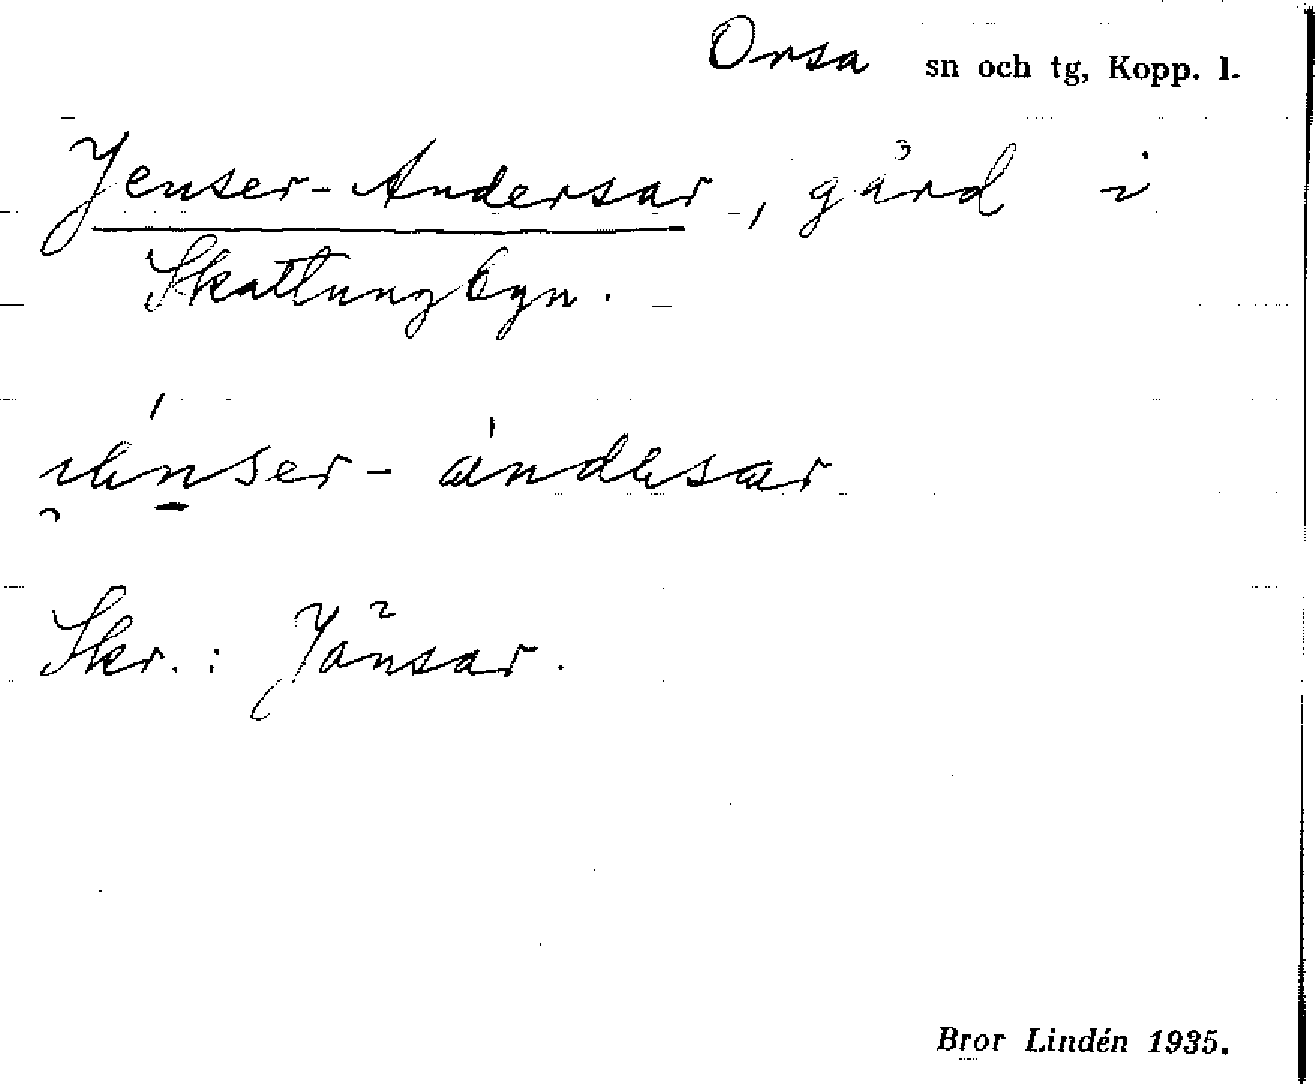 Orsa sn och tg, Kopp. l.
Jenser-Andersar, gård i
Skattungbyn.
Skr.: Jånsar.
Bror Lindén 1935.